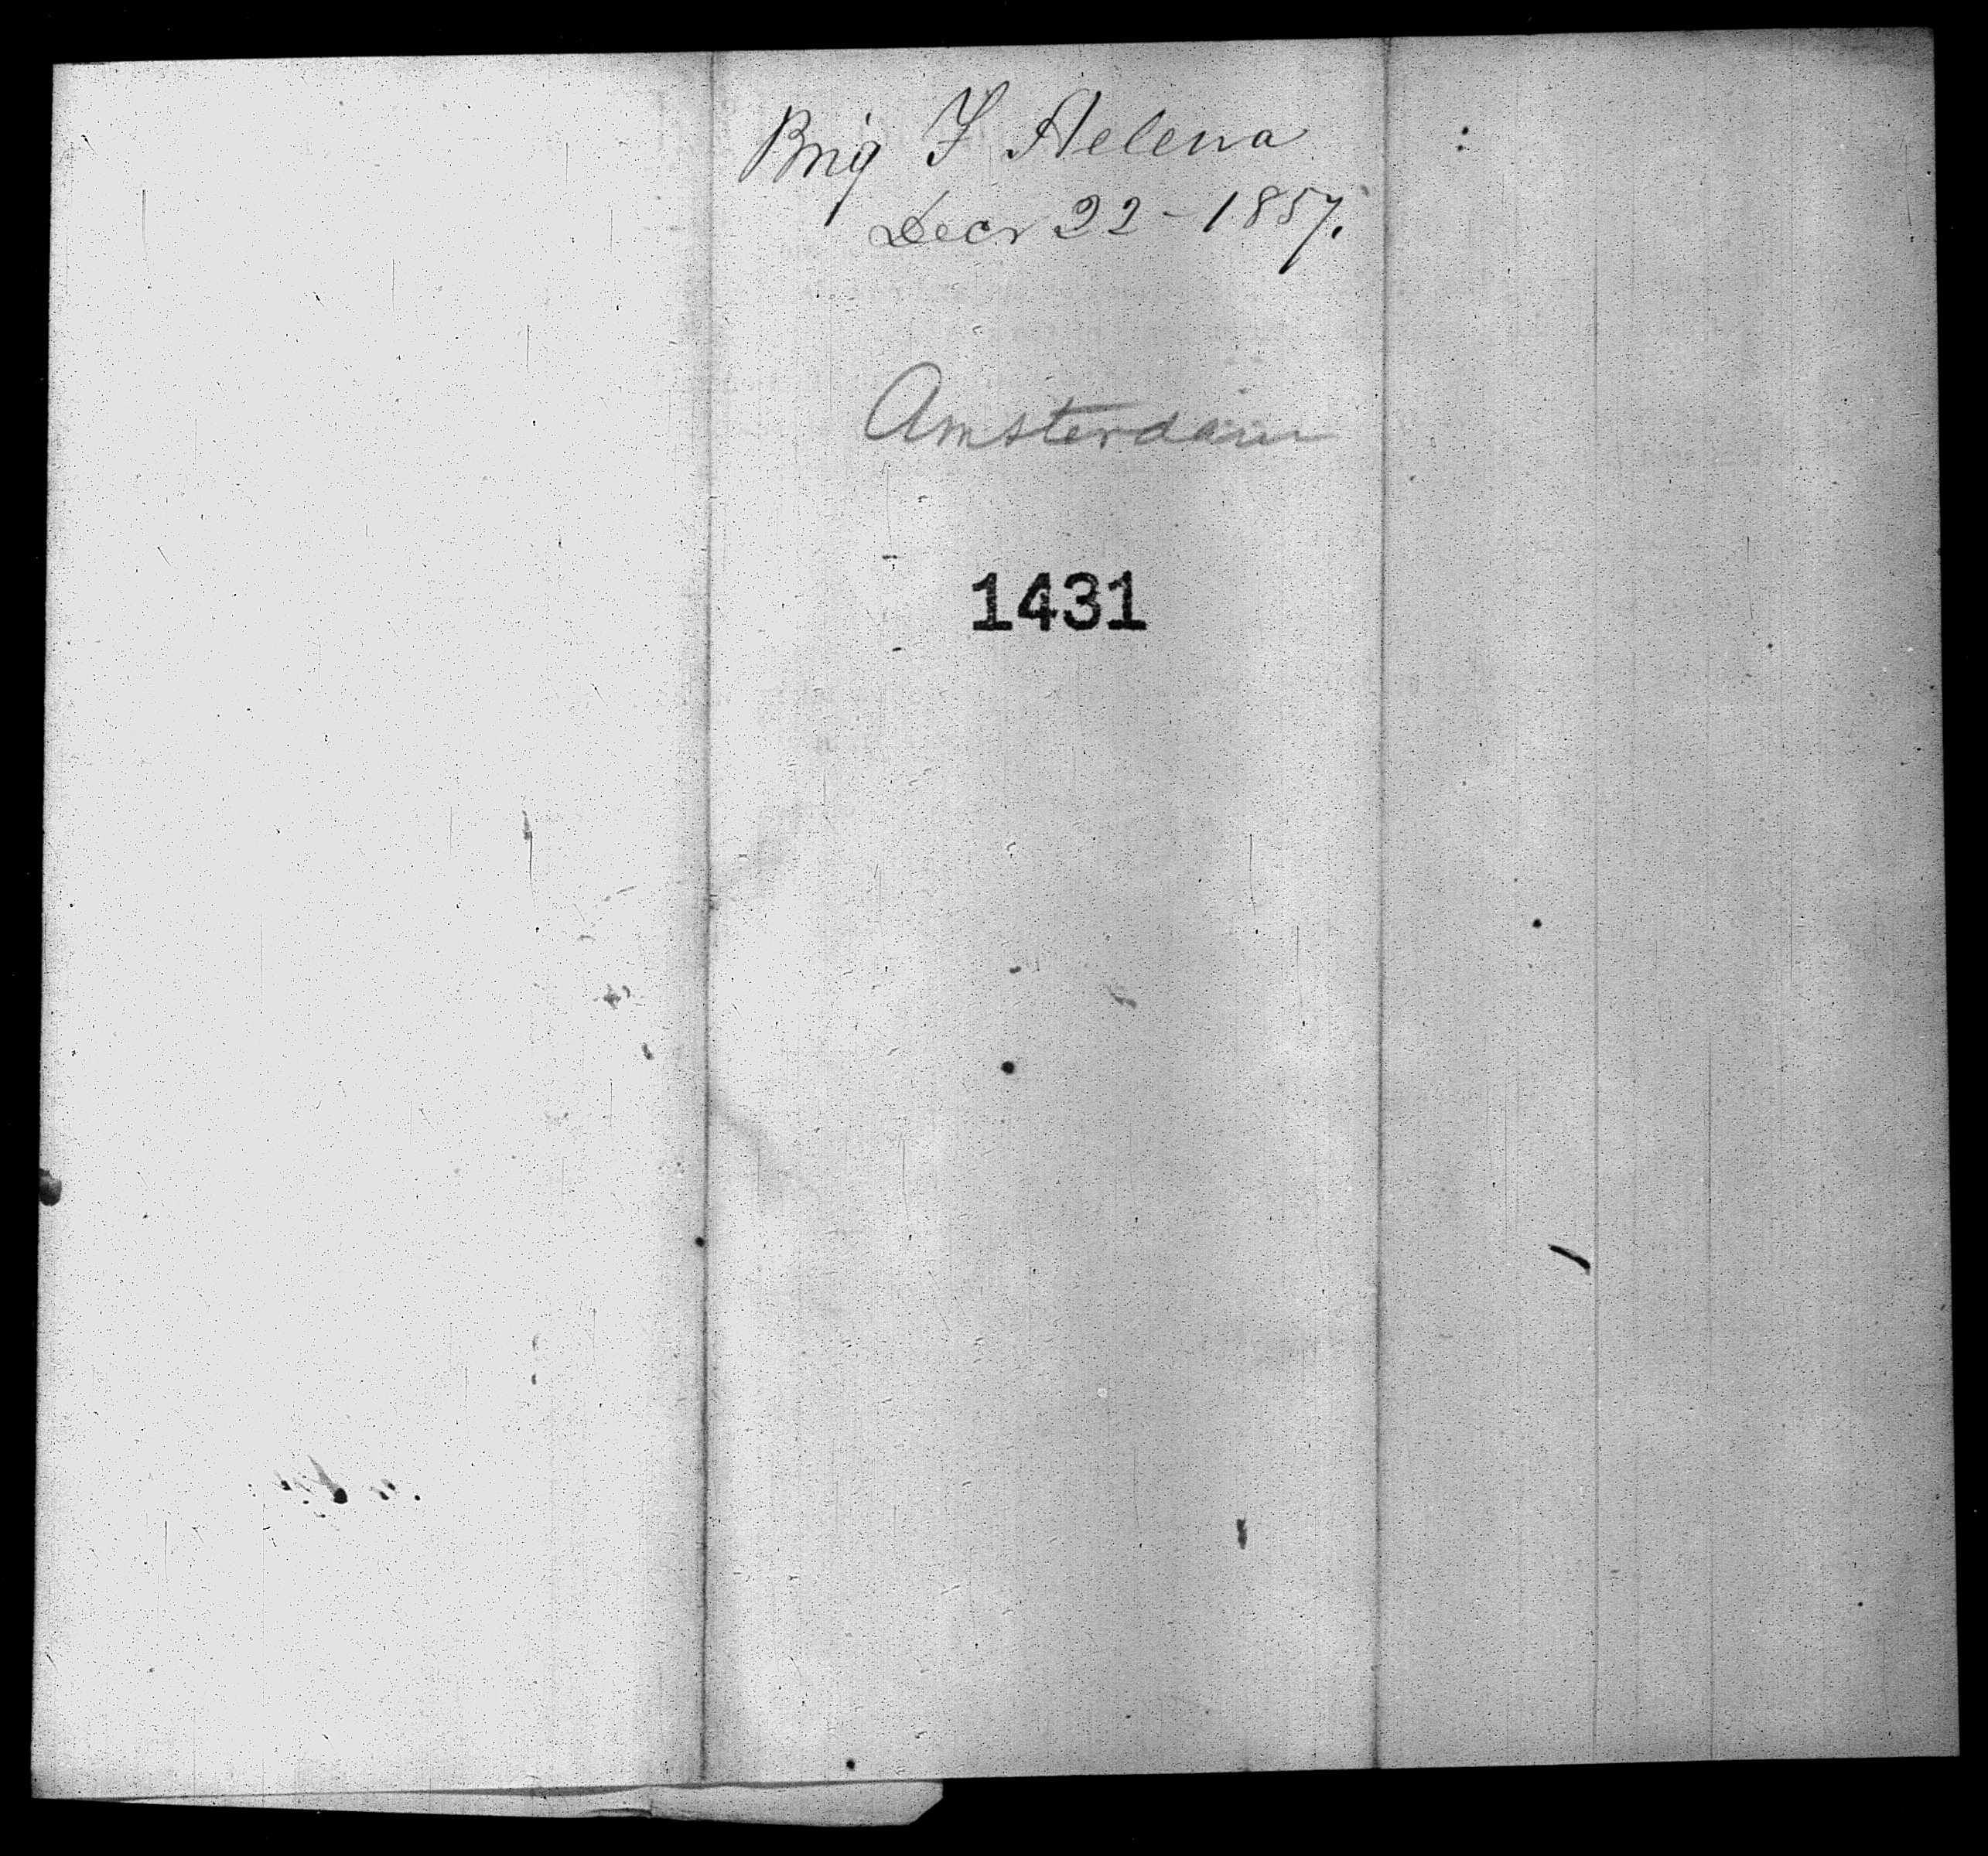 Brig F Helena
Decr 22 - 1857.
Amsterdam
1431